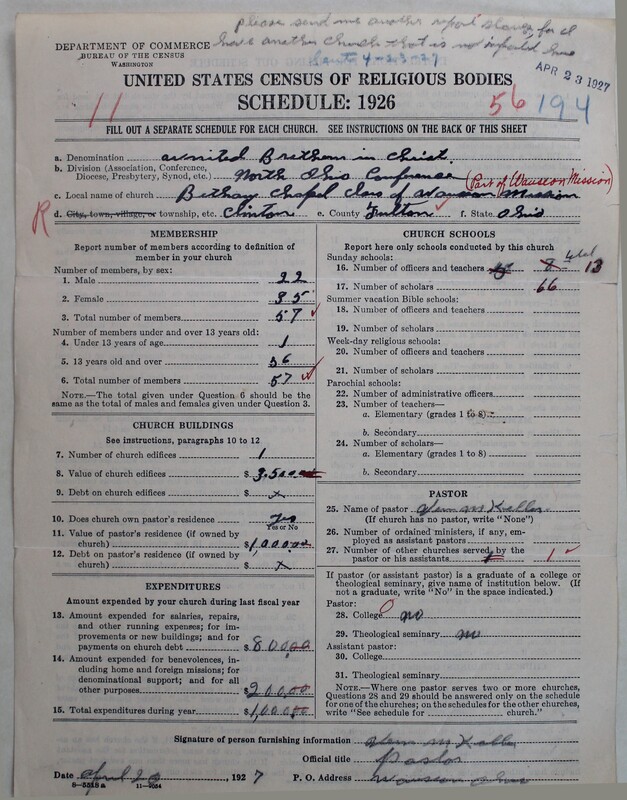 please send me another report schedule for I
have another church that is not reported here
Sent 4-23-27
DEPARTMENT OF COMMERCE
BUREAU OF THE CENSUS
WASHINGTON
APR 23 1927
UNITED STATES CENSUS OF RELIGIOUS BODIES
SCHEDULE: 1926
11
56 194
FILL OUT A SEPARATE SCHEDULE FOR EACH CHURCH. SEE INSTRUCTIONS ON THE BACK OF THIS SHEET
a. Denomination United Brethern in Christ
b. Division (Association, Conference, Diocese, Presbytery, Synod, etc.) North Ohio Conference (Part of Wauseon Mission)
c. Local name of church Bethany Chapel Class of Wauseon Mission
R
d. City, town, village, or township, etc. Clinton e. County Fulton f. State Ohio
MEMBERSHIP
Report number of members according to definition of
member in your church
Number of members, by sex:
1. Male 22
2. Female 35
3. Total number of members 57
Number of members under and over 13 years old:
4. Under 13 years of age 1
5. 13 years old and over 56
6. Total number of members 57
NOTE.—The total given under Question 6 should be
same as the total of males and females given under Question 3.
CHURCH BUILDINGS
See instructions, paragraphs 10 to 12
7. Number of church edifices 1
8. Value of church edifices $ 3,500
9. Debt on church edifices $ x
10. Does church own pastor's residence Yes
Yes or No
11. Value of pastor's residence (if owned by
church) $ 1,000.00
12. Debt on pastor's residence (if owned by
church) $ x
EXPENDITURES
Amount expended by your church during last fiscal year
13. Amount expended for salaries, repairs,
and other running expenses; for im-
provements or new buildings; and for
payments on church debt $ 800.00
14. Amount expended for benevolences, in-
cluding home and foreign missions; for
denominational support; and for all
other purposes $ 200.00
15. Total expenditures during year $ 1,000.00
CHURCH SCHOOLS
Report here only schools conducted by this church
Sunday schools:
16. Number of officers and teachers 5 8 total 13
17. Number of scholars 66
Summer vacation Bible schools:
18. Number of officers and teachers
19. Number of scholars
Week-day religious schools:
20. Number of officers and teachers
21. Number of scholars
Parochial schools:
22. Number of administrative officers
23. Number of teachers—
a. Elementary (grades 1 to 8)
b. Secondary
24. Number of scholars—
a. Elementary (grades 1 to 8)
b. Secondary
PASTOR
25. Name of pastor Glenn M Keller
(If church has no pastor, write "None")
26. Number of ordained ministers, if any, em-
ployed as assistant pastors
27. Number of other churches served by the
pastor or his assistants 1
If pastor (or assistant pastor) is a graduate of a college or
theological seminary, give name of institution below. (If
not a graduate, write "No" in the space indicated.)
Pastor:
28. College no
29. Theological seminary no
Assistant pastor:
30. College
31. Theological seminary
NOTE.—Where one pastor serves two or more churches,
Questions 28 and 29 should be answered only on the schedule
for one of the churches; on the schedules for the other churches,
write "See schedule for church."
Signature of person furnishing information Glenn M Keller
Official title Pastor
Date April 20, 1927 P. O. Address Wauseon Ohio
8—5518a 11—7034